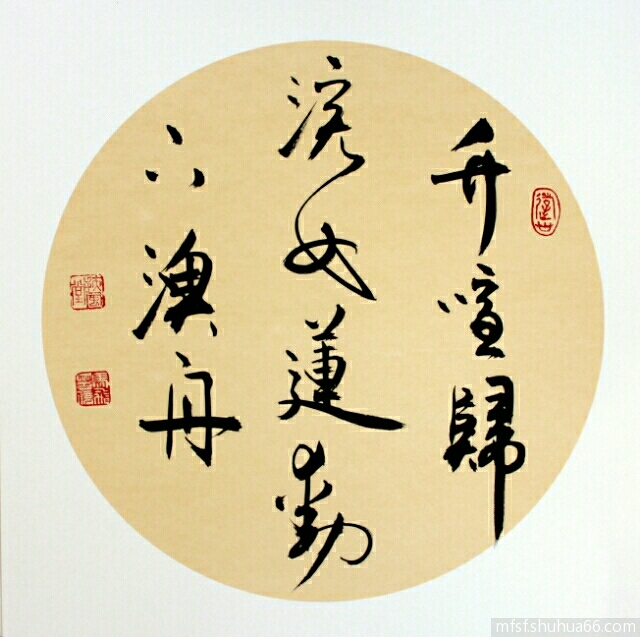 竹喧歸
浣女蓮動
下漁舟
mfsf.shuhua66.com